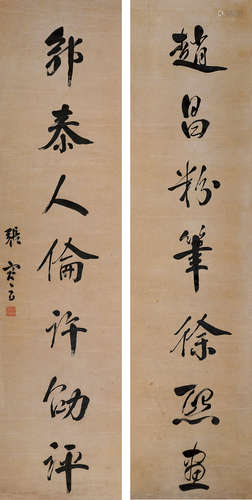 趙昌粉筆徐熙畫
郭泰人倫許劭評
張寅